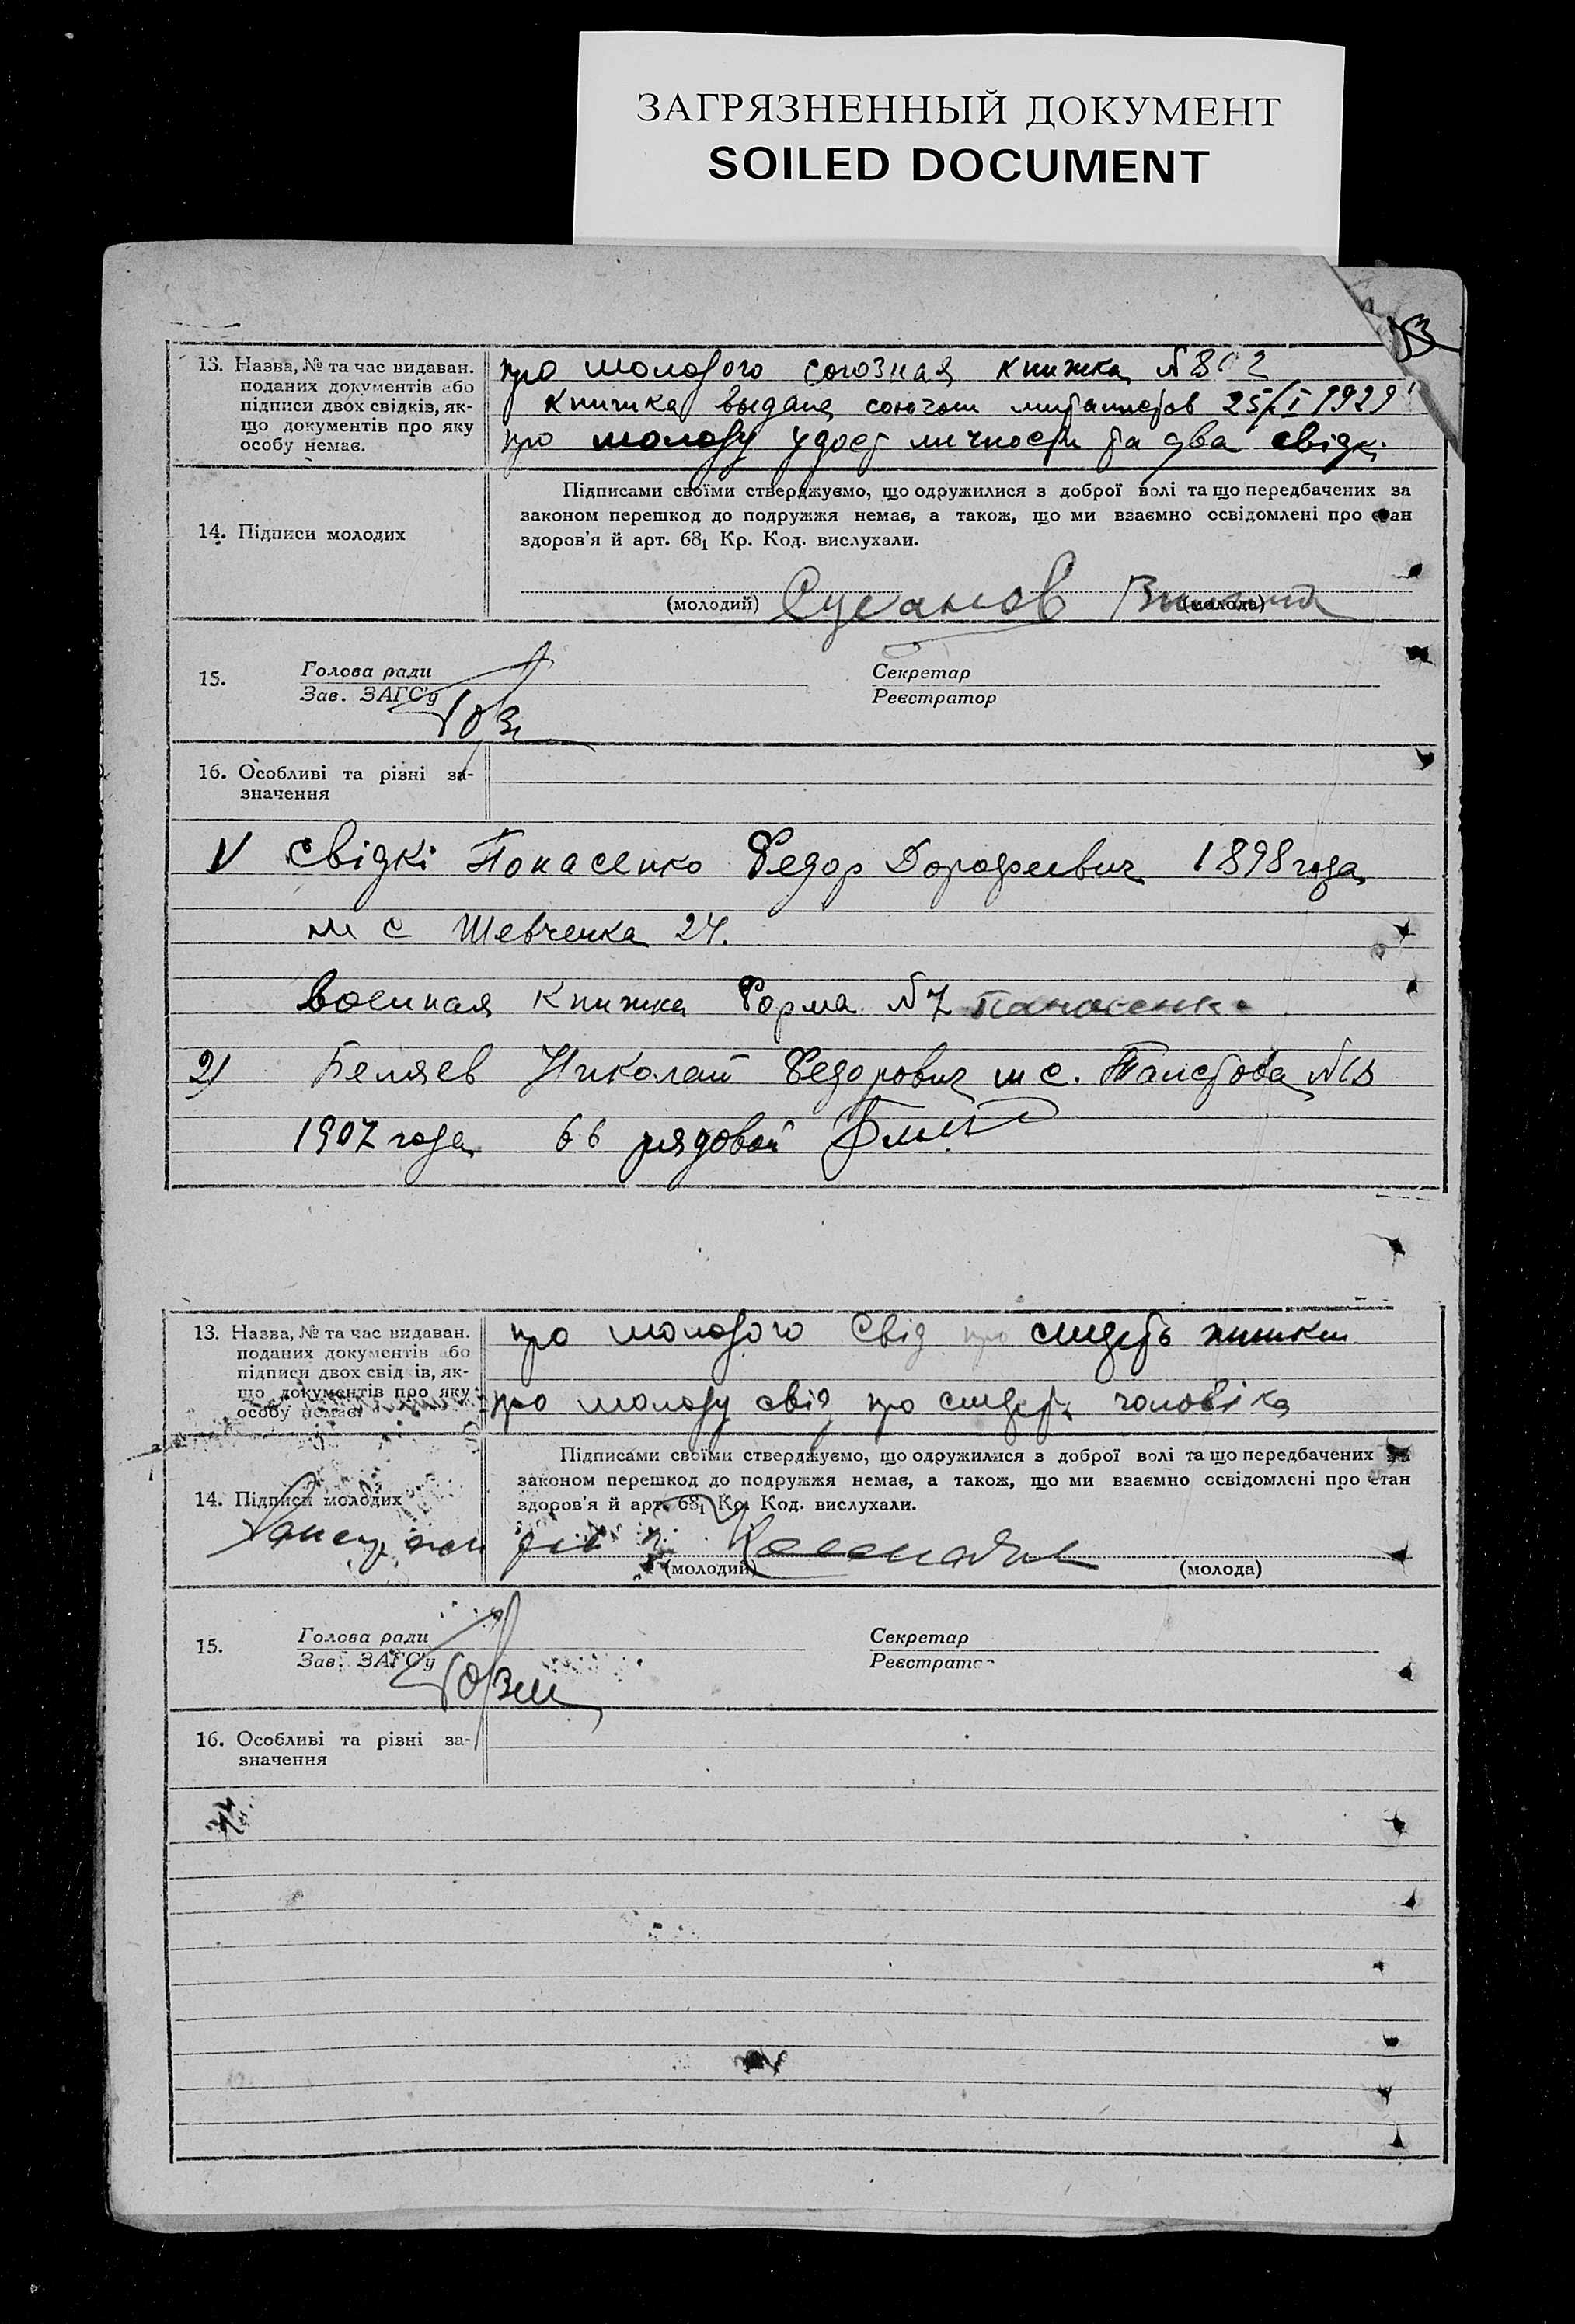 ЗАГРЯЗНЕННЫЙ ДОКУМЕНТ
SOILED DOCUMENT
13. Назва, № та час видаван.
поданих документів або
підписи двох свідків, як-
що документів про яку
особу немає.
про молодого союзная книжка №802
книжка выдана союзом металистов 25/I 1929
про молоду удост личности та два свідк.
14. Підписи молодих
Підписами своїми стверджуємо, що одружилися з доброї волі та що передбачених за
законом перешкод до подружжя немає, а також, що ми взаємно освідомлені про стан
здоров'я й арт. 68₁ Кр. Код. вислухали.
(молодий) (молода)
15. Голова ради
Зав. ЗАГС'у
Секретар
Реєстратор
16. Особливі та різні за-
значення
свідкі Понасенко Федор Дорофеевич 1898 года
м с Шевченка 24.
военная книжка Форма №7 Панасенко
2) Беляев Николай Федорович м с.
1907 года рядовой
13. Назва, № та час видаван.
поданих документів або
підписи двох свідків, як-
що документів про яку
особу немає.
про молодого свід про смерть жинки
про молоду свід про смерть чоловіка
14. Підписи молодих
Підписами своїми стверджуємо, що одружилися з доброї волі та що передбачених за
законом перешкод до подружжя немає, а також, що ми взаємно освідомлені про стан
здоров'я й арт. 68₁ Кр. Код. вислухали.
(молодий) (молода)
15. Голова ради
Зав. ЗАГС'у
Секретар
Реєстратор
16. Особливі та різні за-
значення